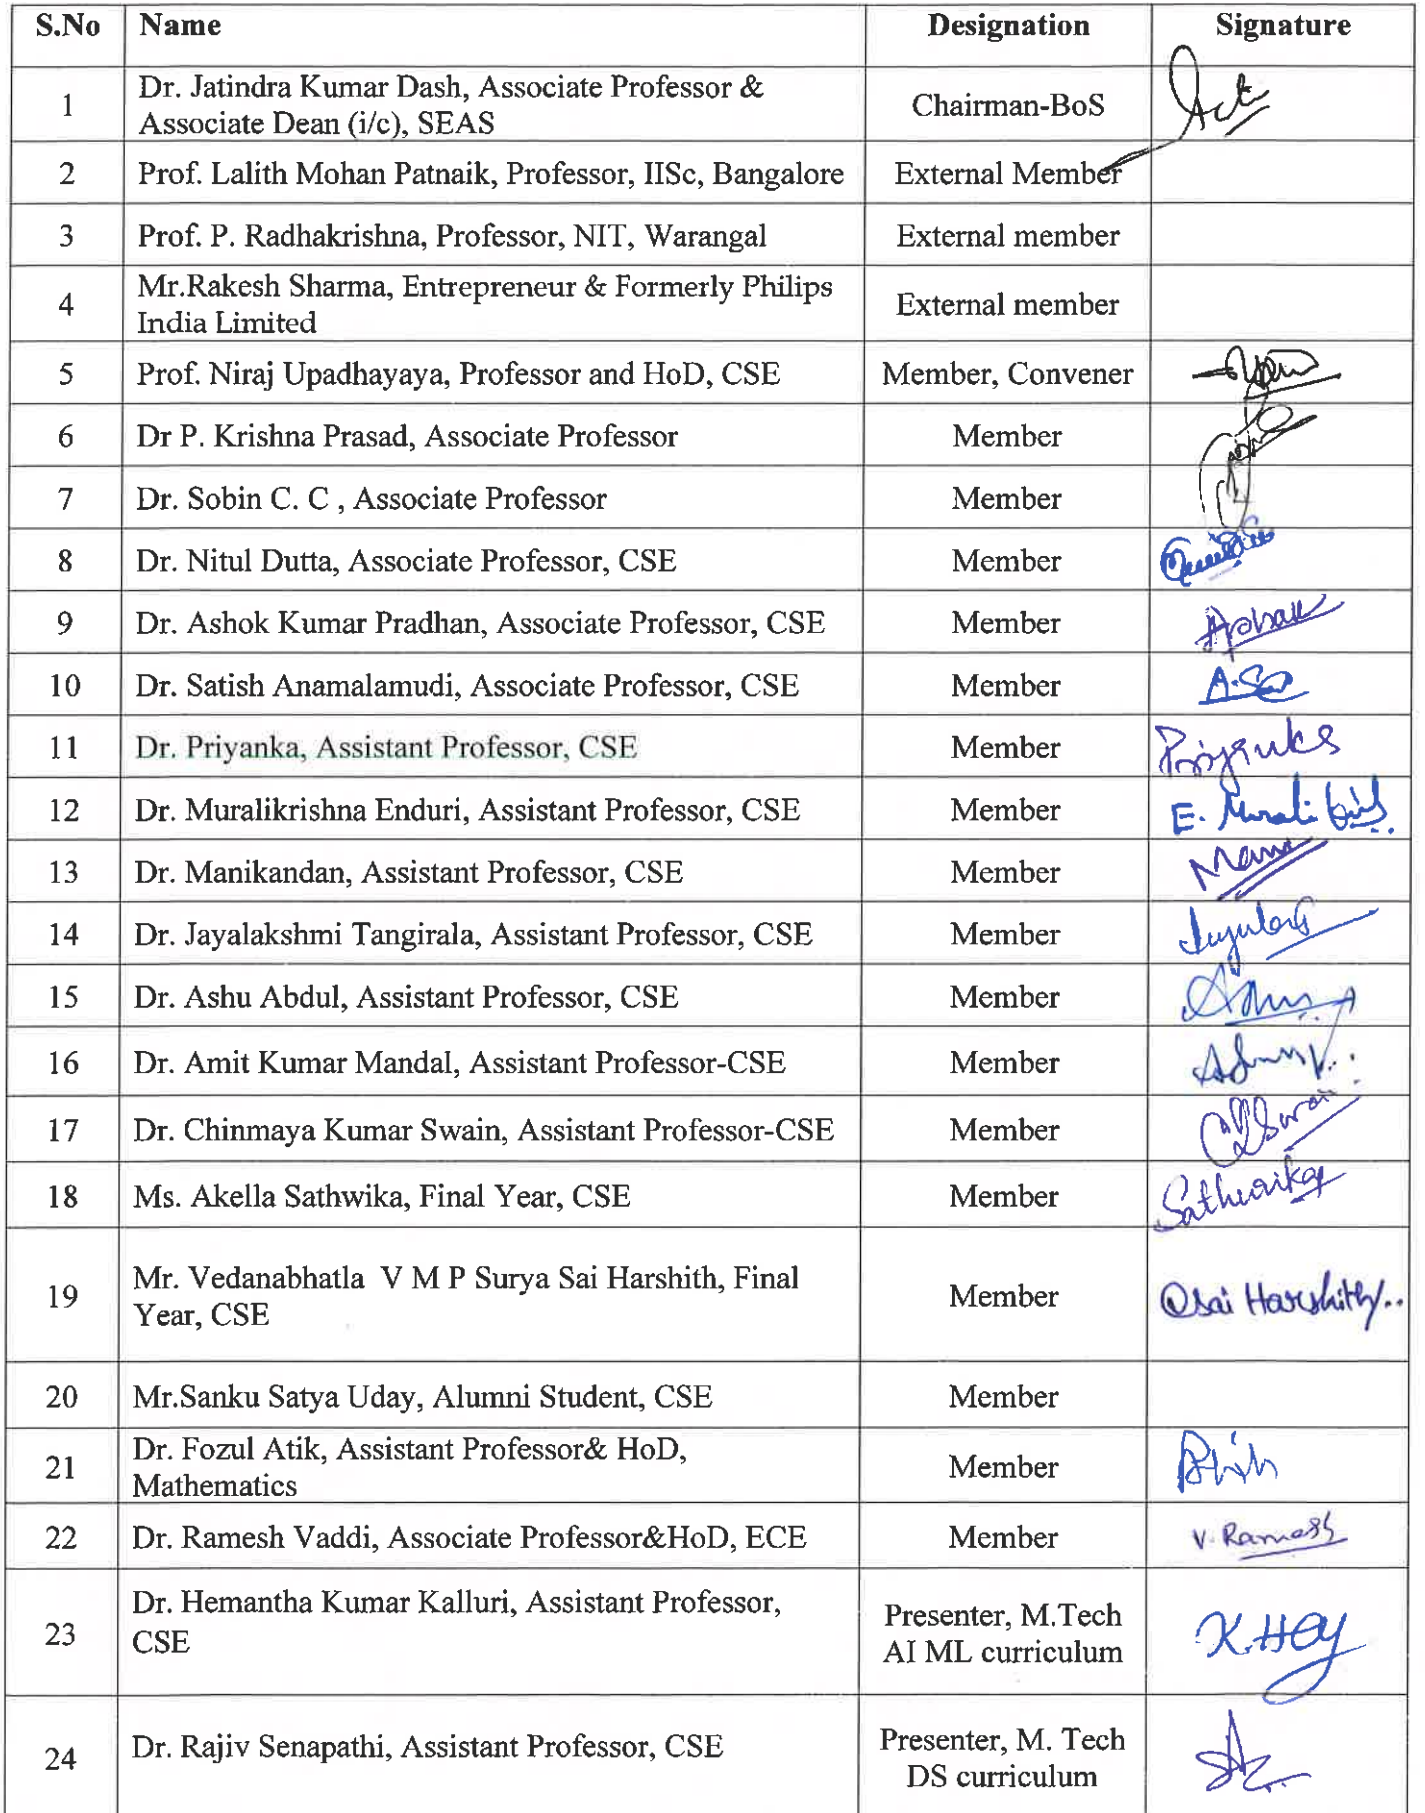 S.No Name Designation Signature
1 Dr. Jatindra Kumar Dash, Associate Professor &
Associate Dean (i/c), SEAS Chairman-BoS
2 Prof. Lalith Mohan Patnaik, Professor, IISc, Bangalore External Member
3 Prof. P. Radhakrishna, Professor, NIT, Warangal External member
4 Mr.Rakesh Sharma, Entrepreneur & Formerly Philips
India Limited External member
5 Prof. Niraj Upadhayaya, Professor and HoD, CSE Member, Convener
6 Dr P. Krishna Prasad, Associate Professor Member
7 Dr. Sobin C. C , Associate Professor Member
8 Dr. Nitul Dutta, Associate Professor, CSE Member
9 Dr. Ashok Kumar Pradhan, Associate Professor, CSE Member Ashok
10 Dr. Satish Anamalamudi, Associate Professor, CSE Member
11 Dr. Priyanka, Assistant Professor, CSE Member Priyanka
12 Dr. Muralikrishna Enduri, Assistant Professor, CSE Member E. Murali
13 Dr. Manikandan, Assistant Professor, CSE Member Mani
14 Dr. Jayalakshmi Tangirala, Assistant Professor, CSE Member
15 Dr. Ashu Abdul, Assistant Professor, CSE Member
16 Dr. Amit Kumar Mandal, Assistant Professor-CSE Member
17 Dr. Chinmaya Kumar Swain, Assistant Professor-CSE Member Swain
18 Ms. Akella Sathwika, Final Year, CSE Member Sathwika
19 Mr. Vedanabhatla V M P Surya Sai Harshith, Final
Year, CSE Member Sai Harshith
20 Mr.Sanku Satya Uday, Alumni Student, CSE Member
21 Dr. Fozul Atik, Assistant Professor& HoD,
Mathematics Member
22 Dr. Ramesh Vaddi, Associate Professor&HoD, ECE Member V. Ramesh
23 Dr. Hemantha Kumar Kalluri, Assistant Professor,
CSE Presenter, M.Tech
AI ML curriculum
24 Dr. Rajiv Senapathi, Assistant Professor, CSE Presenter, M. Tech
DS curriculum